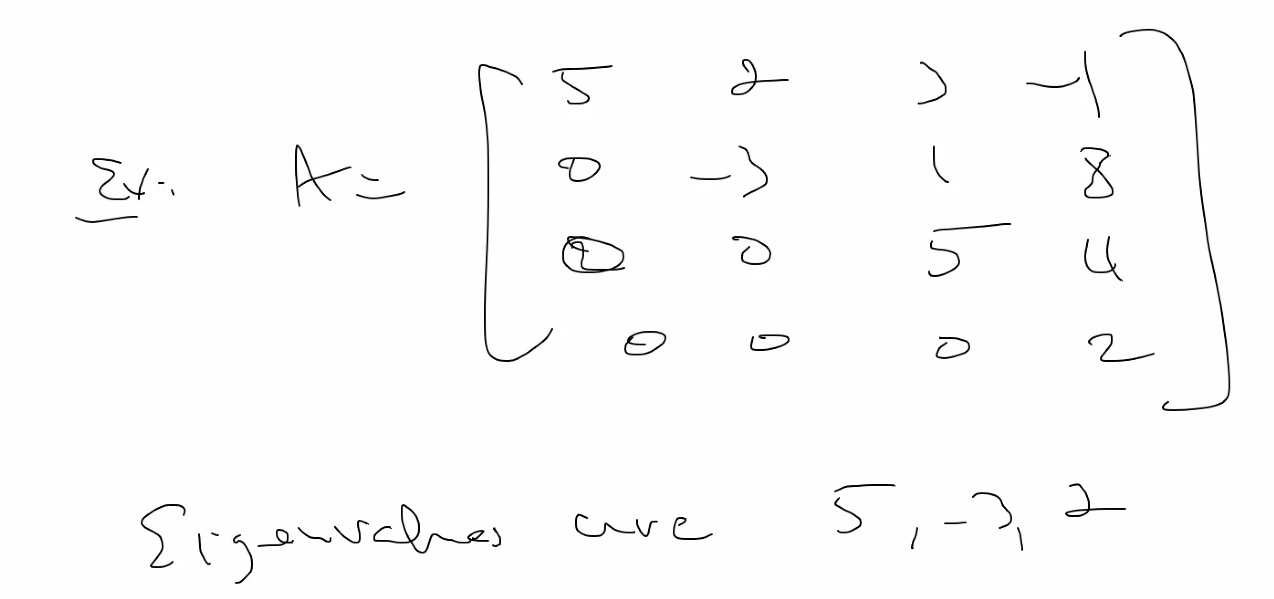 Ex:. A =
5 2 3 -1
0 -3 1 8
0 0 5 4
0 0 0 2
Eigenvalues are 5, -3, 2